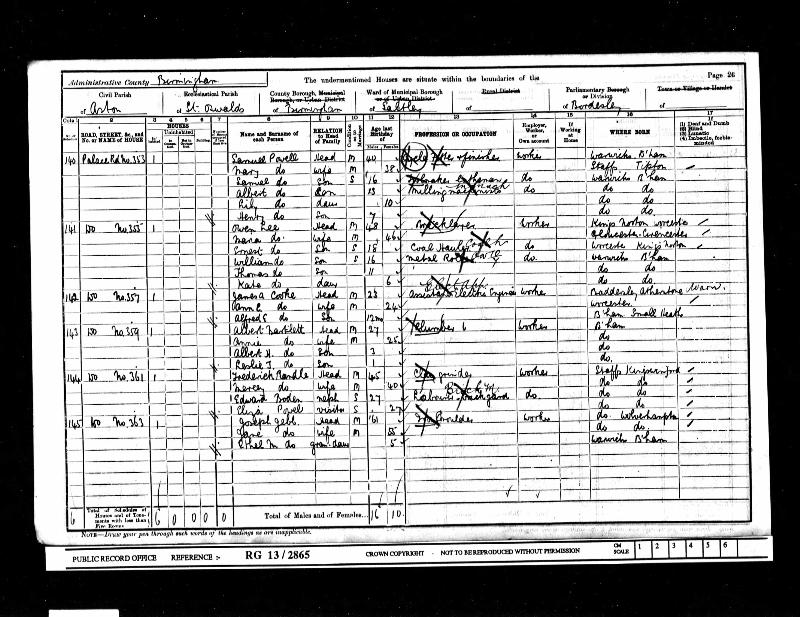 Administrative County Birmingham The undermentioned Houses are situate within the boundaries of the Page 26
Civil Parish Ecclesiastical Parish County Borough, Municipal Borough, or Urban District Ward of Municipal Borough or of Urban District Rural District Parliamentary Borough or Division Town or Village or Hamlet
of Aston of St. Oswalds of Birmingham of Saltley of of Bordesley of
1 2 3 4 5 6 7 8 9 10 11 12 13 14 15 16 17
ROAD, STREET, &c., and No. or NAME of HOUSE HOUSES Uninhabited Name and Surname of each Person RELATION to Head of Family Condition as to Marriage Age last Birthday of Males Females PROFESSION OR OCCUPATION Employer, Worker, or Own account If Working at Home WHERE BORN (1) Deaf and Dumb (2) Blind (3) Lunatic (4) Imbecile, feeble-minded
140 Palace Rd No. 353 1 Samuel Powell Head M 40 worker Warwicks B'ham
Mary do wife M 38 Staffs Tipton
Samuel do Son S 16 do Warwicks B'ham
Albert do Son 13 Milling do do do
Lily do daur 10 do do
Henry do Son 7 do do
141 do No. 355 1 Owen Lee Head M 48 worker Kings Norton Worcester
do wife M 46 Gloucester Cirencester
Ernest do Son S 18 Coal Hauler do Worcester Kings Norton
William do Son S 16 Metal do Warwick B'ham
Thomas do Son 11 do do
Kate do daur 6 do do
142 do No. 357 James A Cooke Head M 23 Electric Engineer worker Baddesley Atherstone Warw.
Ann E. do wife M 24 Worcester
Alfred E do Son 12mo B'ham Small Heath
143 do No. 359 1 Albert Bartlett Head M 27 Plumber worker B'ham
Annie do wife M 25 do
Albert H. do Son 3 do
Leslie T. do Son 1 do
144 do No. 361 1 Frederick Randle Head M 45 grinder worker Staffs
Mercy do wife M 40 do do
Edward neph S 27 Labourer do do do
Eliza Powell visitor S 27 do do
145 do No. 363 1 Joseph Head M 61 Iron Moulder worker do Wolverhampton
Jane do wife M 55 do do
Ethel M do gran daur 5 Warwick B'ham
6 Total of Schedules of Houses and of Tenements with less than Five Rooms 6 0 0 0 0 Total of Males and of Females... 16 10
NOTE—Draw your pen through such words of the headings as are inapplicable.
PUBLIC RECORD OFFICE REFERENCE :- RG 13/2865 CROWN COPYRIGHT - NOT TO BE REPRODUCED WITHOUT PERMISSION CM SCALE 1 2 3 4 5 6